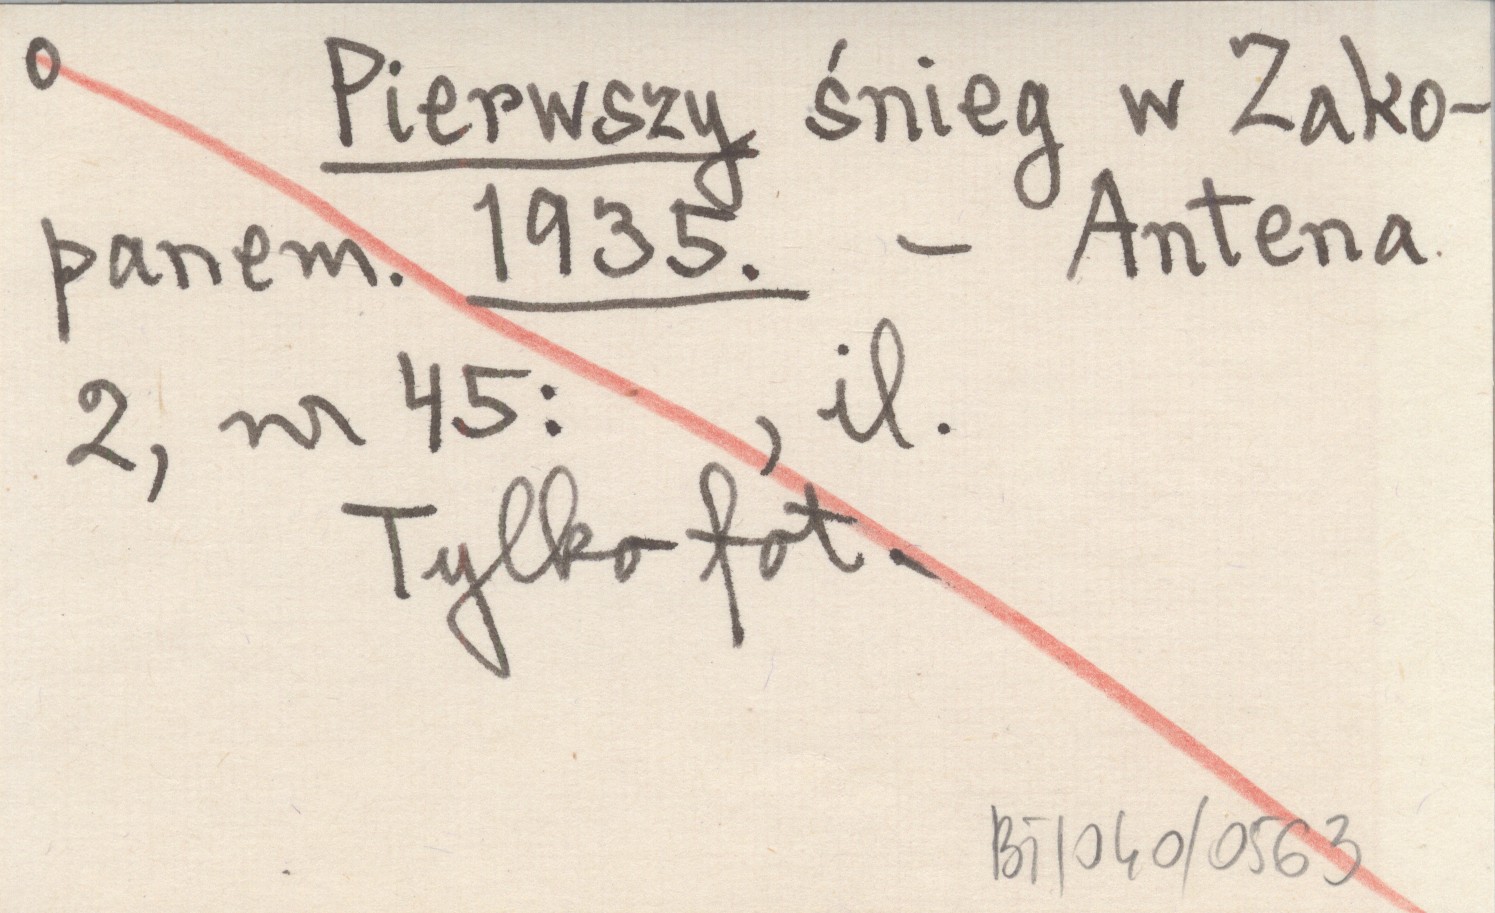 o Pierwszy śnieg w Zako-
panem. 1935. - Antena
2, nr 45: , il.
Tylko fot.
BT/040/0563